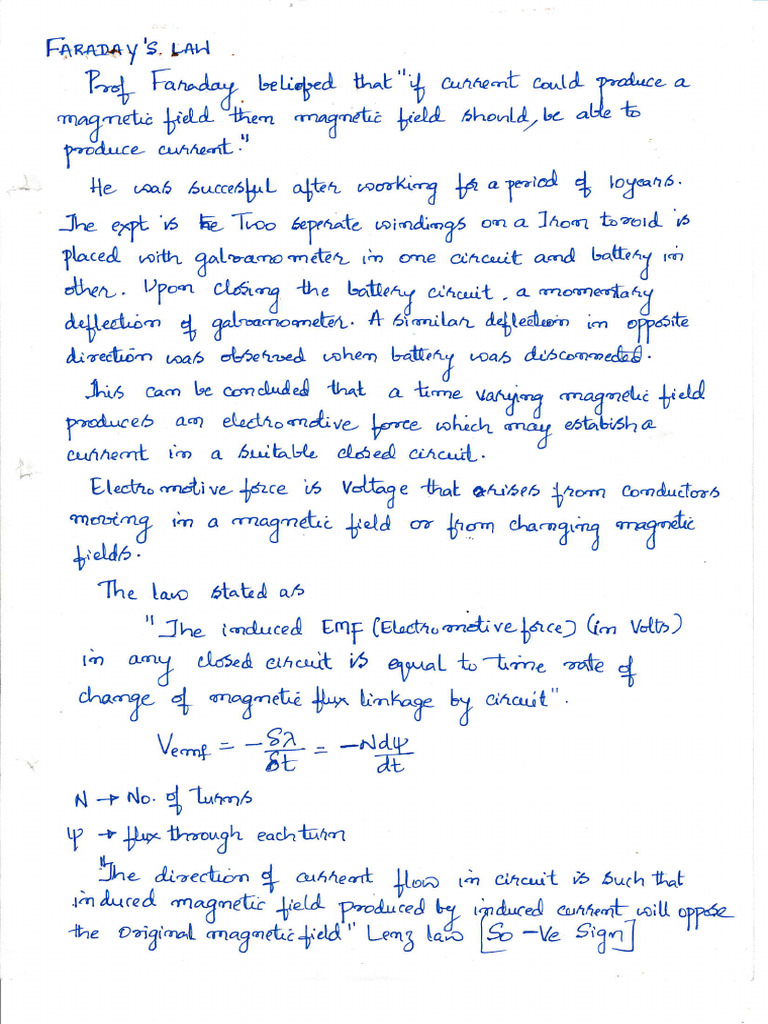 FARADAY'S. LAW
Prof Faraday beliefed that "if current could produce a
magnetic field then magnetic field should, be able to
produce current."
He was succesful after working for a period of 10years.
The expt is Two seperate windings on a Iron toroid is
placed with galvanometer in one circuit and battery in
other. Upon closing the battery circuit, a momentary
deflection of galvanometer. A similar deflection in opposite
direction was observed when battery was disconnected.
This can be concluded that a time varying magnetic field
produces an electromotive force which may estabish a
current in a suitable closed circuit.
Electromotive force is Voltage that arises from conductors
moving in a magnetic field or from changing magnetic
fields.
The law stated as
"The induced EMF (Electromotive force) (in Volts)
in any closed circuit is equal to time rate of
change of magnetic flux linkage by circuit".
Vemf = -δλ/δt = -Ndψ/dt
N → No. of Turns
ψ → flux through each turn
"The direction of current flow in circuit is such that
induced magnetic field produced by induced current will oppose
the original magnetic field" Lenz law [So -Ve Sign]